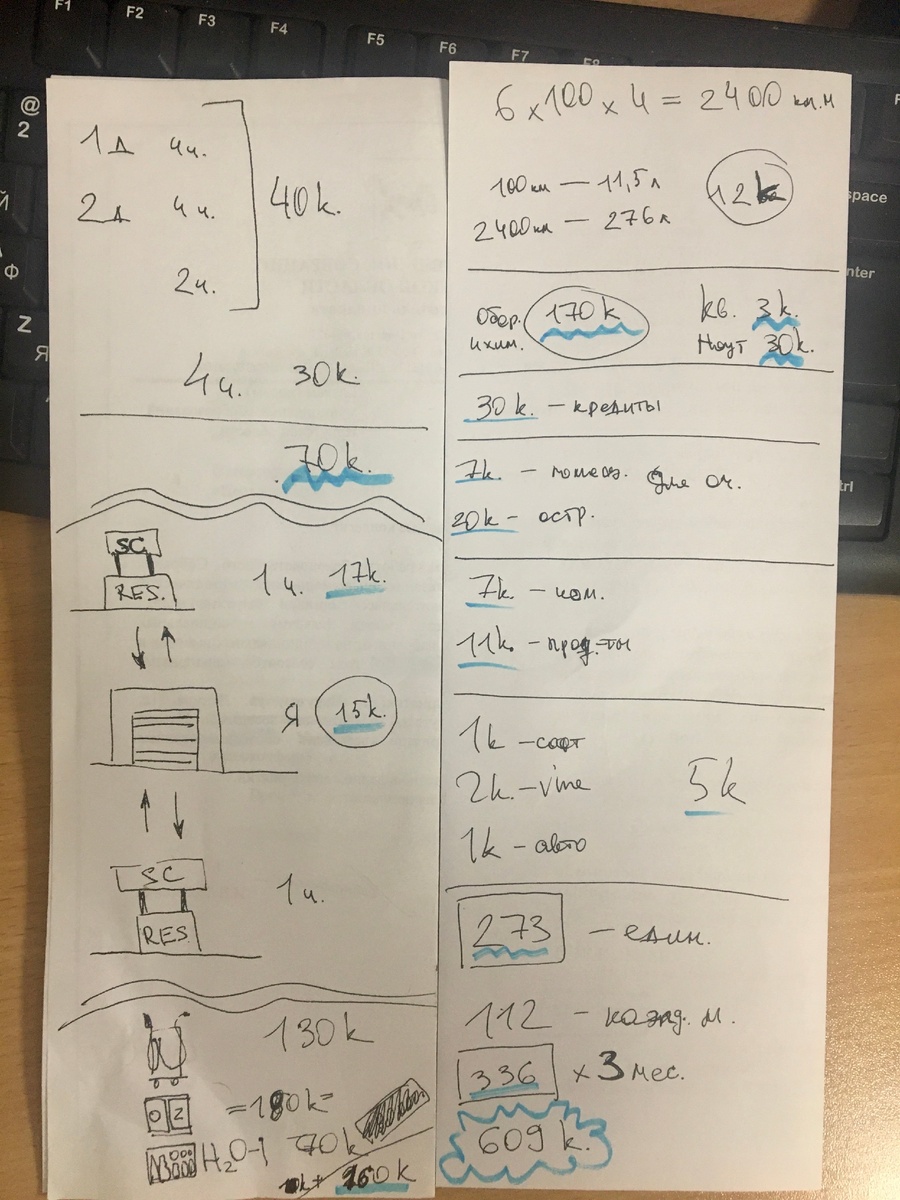 F1 F2 F3 F4 F5 F6 F7 F8
@
2
Й
Ф
Z
Я
space
nter
trl
1д 4ч.
2д 4ч.
2ч.
40k.
4ч. 30k.
70k.
SC
RES.
1ч. 17k.
Я 15k.
SC
RES
1ч.
130k
O Z =180k=
H2O-1 70k
160k
6 x 100 x 4 = 2400 км.м
100км — 11,5л
2400км — 276л
12k
Обор. 170k кв. 3k.
и хим. Ноут 30k.
30k. — кредиты
7k. — помещ. для оч.
20k — остр.
7k — ком.
11k. — прод-ты
1k — сайт
2k. — vine
1k — авто
5k
273 — един.
112 — кажд. м.
336 x 3 мес.
609k.